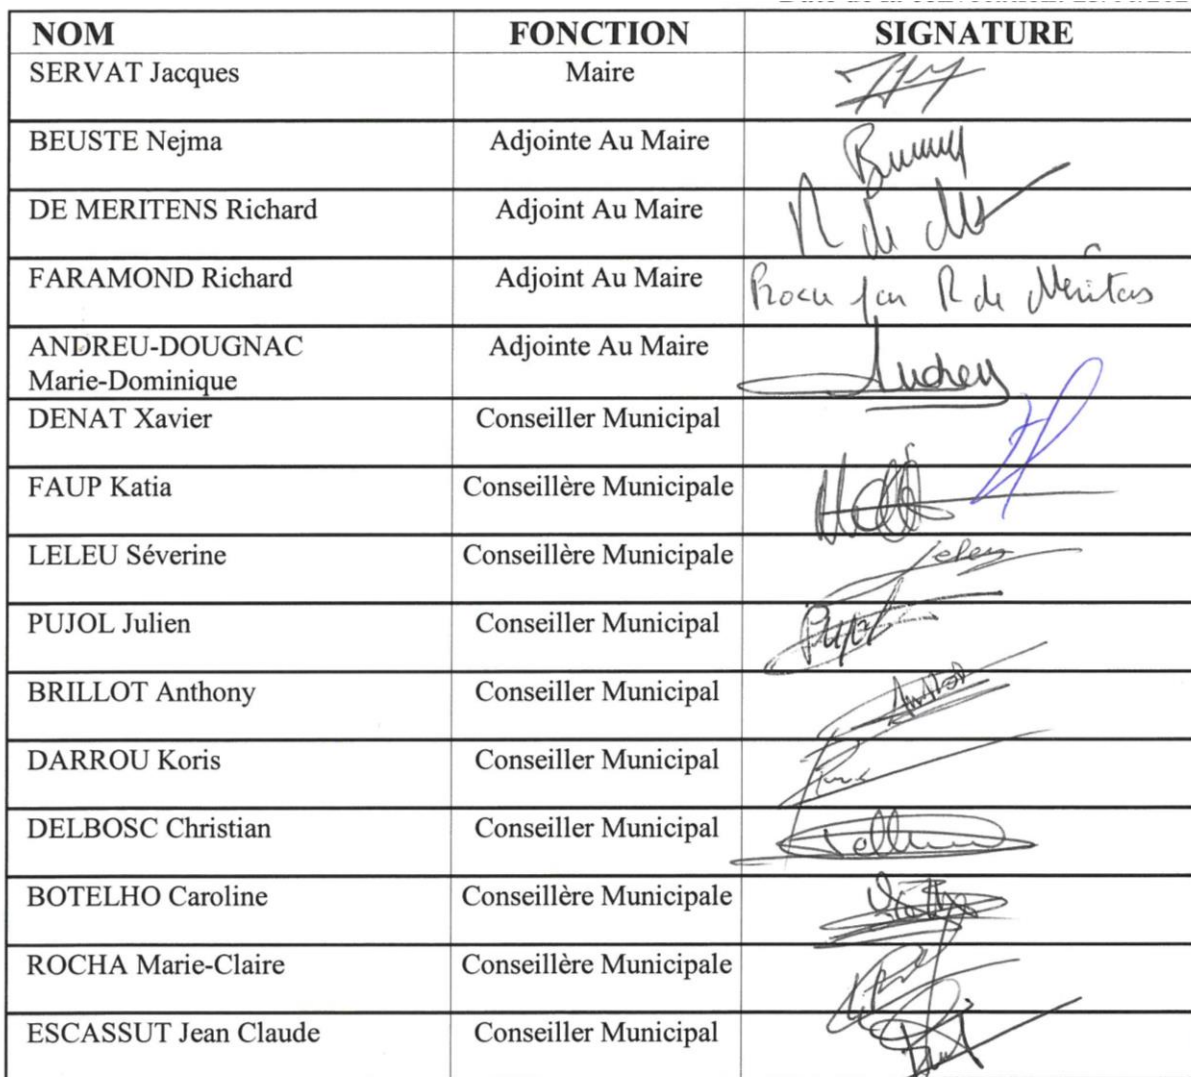 NOM FONCTION SIGNATURE
SERVAT Jacques Maire
BEUSTE Nejma Adjointe Au Maire
DE MERITENS Richard Adjoint Au Maire
R de
FARAMOND Richard Adjoint Au Maire
R de Meritens
ANDREU-DOUGNAC Adjointe Au Maire
Marie-Dominique
DENAT Xavier Conseiller Municipal
FAUP Katia Conseillère Municipale
LELEU Séverine Conseillère Municipale
PUJOL Julien Conseiller Municipal
BRILLOT Anthony Conseiller Municipal
DARROU Koris Conseiller Municipal
DELBOSC Christian Conseiller Municipal
BOTELHO Caroline Conseillère Municipale
ROCHA Marie-Claire Conseillère Municipale
ESCASSUT Jean Claude Conseiller Municipal